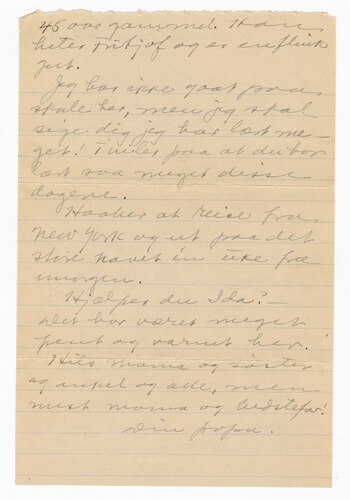 45 aar gammel. Han
heter Fritjof og er en flink
gut.
Jeg har ikke gaat paa
skole her, men jeg skal
sige dig jeg har læst me-
get! Tviler paa at du har
læst saa meget disse
dagene.
Haaber at reise fra
New York og ut paa det
store havet en uke fra
imorgen.
Hjælper du Ida? –
Det har været meget
pent og varmt her.
Hils mama og søster
og onkel og alle, men
mest mama og bedstefar!
Din papa.